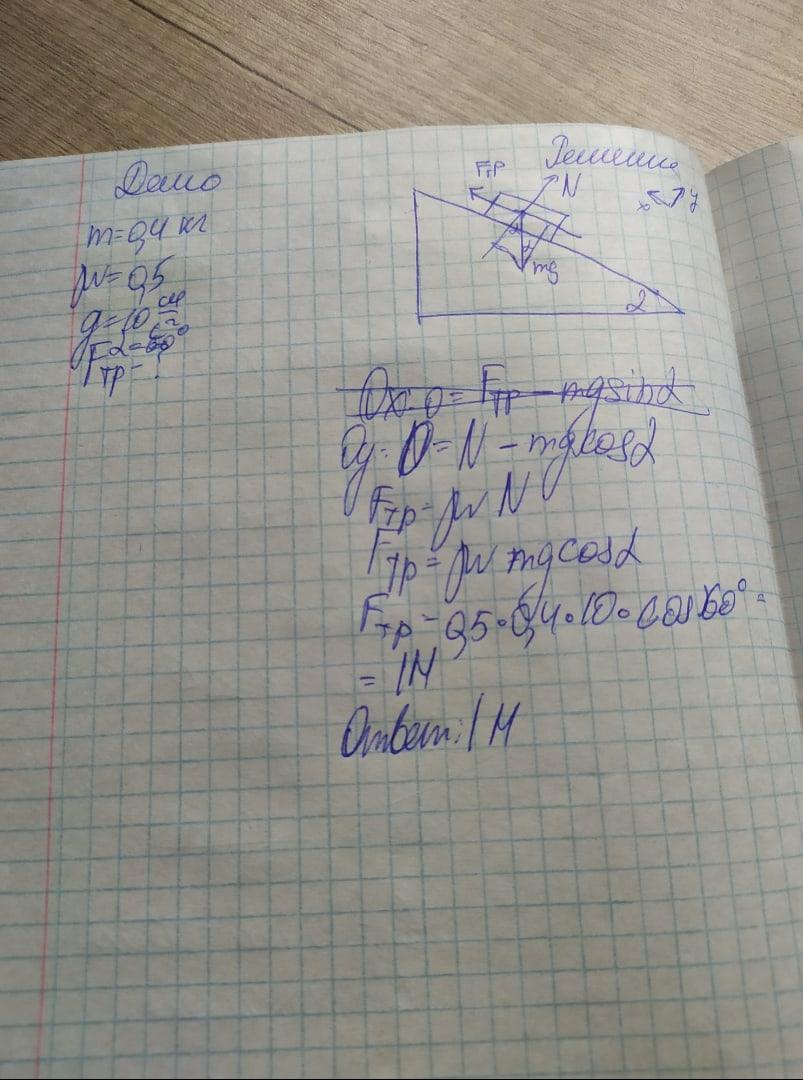 Дано
m=0,4 кг
μ=0,5
g=10 см/с²
α=60°
Fтр-?
Решение
Fтр
N
x
y
mg
α
Ox: 0 = Fтр - mg sinα
Oy: 0 = N - mg cosα
Fтр = μ N
Fтр = μ mg cosα
Fтр = 0,5 • 0,4 • 10 • cos 60° =
= 1Н
Ответ: 1 Н